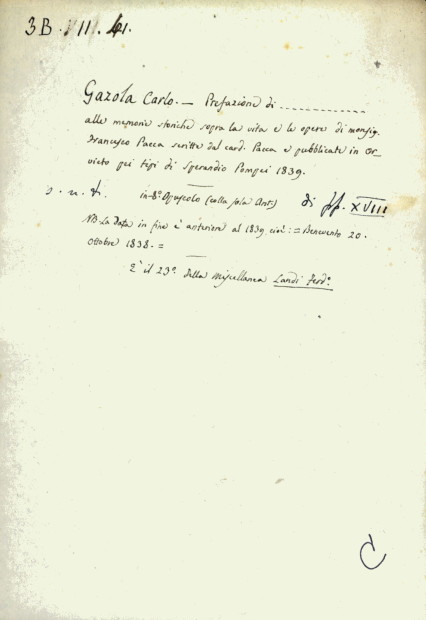 3B. VII. 41.
Gazola Carlo. — Prefazione di ----------
alle memorie storiche sopra la vita e le opere di monsig.
Francesco Pacca scritte dal card. Pacca e pubblicate in Or-
vieto pei tipi di Sperandio Pompei 1839.
s. n. t. in-8° Opuscolo (colla sola Ant.) di pp. XVIII
NB. La Data in fine è anteriore al 1839 cioè: = Benevento 20.
Ottobre 1838. =
È il 23°. della Miscellanea Landi Ferd°.
C